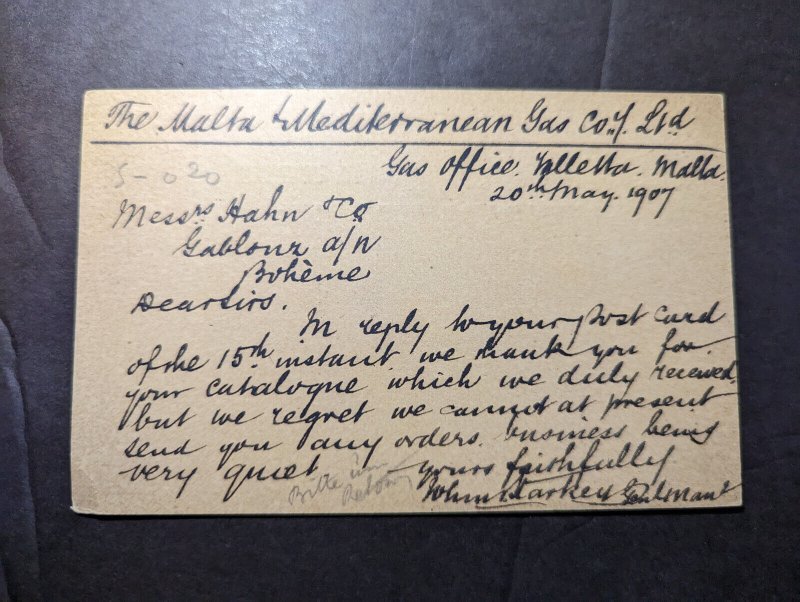 The Malta & Mediterranean Gas Coy. Ltd
Gas Office. Valletta. Malta.
20th May. 1907
5-020
Messrs Hahn & Co
Gablonz a/N
Bohème
Dear Sirs.
In reply to your Post Card
of the 15th instant we thank you for
your catalogue which we duly received,
but we regret we cannot at present
send you any orders. business being
very quiet
yours faithfully
Bitte um
John Starkey